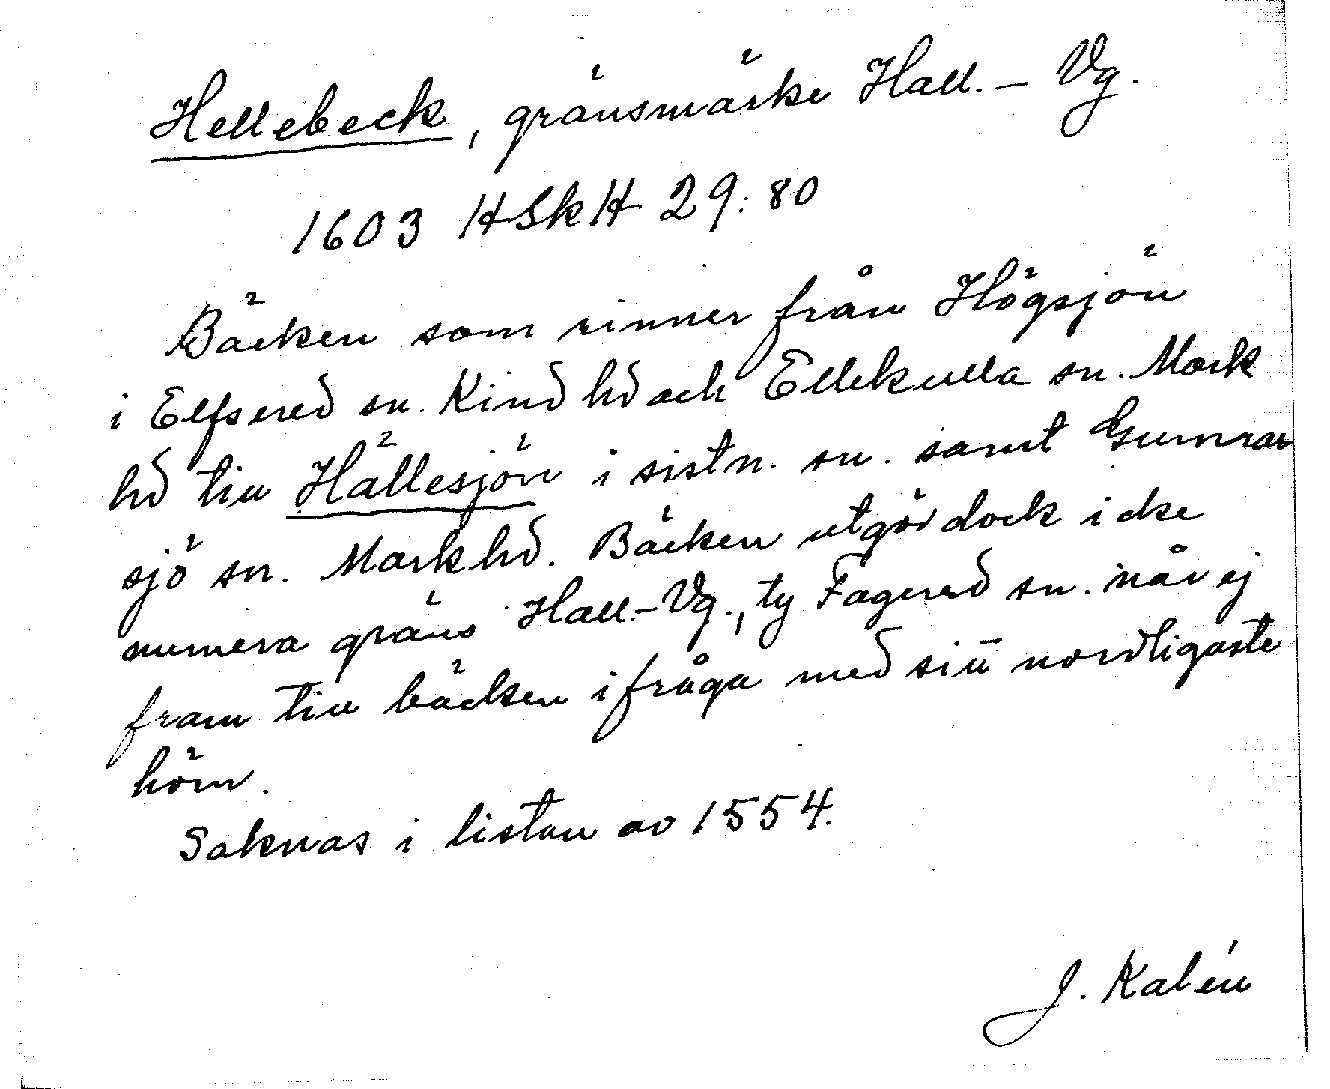 Hellebeck, gränsmärke Hall. – Vg.
1603 HSkH 29:80
Bäcken som rinner från Högsjön
i Elfsered sn. Kind hd och Ellekulla sn. Mark
hd till Hällesjön i sistn. sn. samt Gunnar
sjö sn. Mark hd. Bäcken utgör dock icke
numera gräns Hall.-Vg., ty Fagered sn. når ej
fram till bäcken ifråga med sin nordligaste
hörn.
Saknas i listan av 1554.
J. Kalén